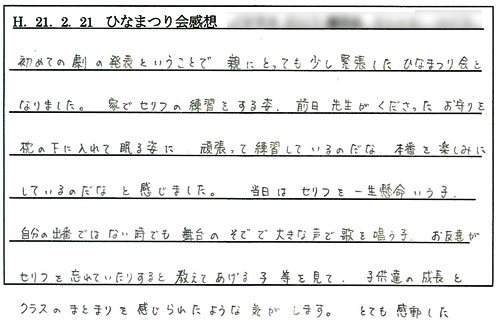 H. 21. 2. 21 ひなまつり会感想
初めての劇の発表ということで 親にとっても少し緊張したひなまつり会と
なりました。 家でセリフの練習をする姿、前日先生がくださったお守りを
枕の下に入れて眠る姿に 頑張って練習しているのだな 本番を楽しみに
しているのだなと感じました。 当日はセリフを一生懸命いう子、
自分の出番ではない時でも舞台のそでで大きな声で歌を唱う子、お友達が
セリフを忘れていたりすると教えてあげる子等を見て、子供達の成長と
クラスのまとまりを感じられたような気がします。 とても感動した